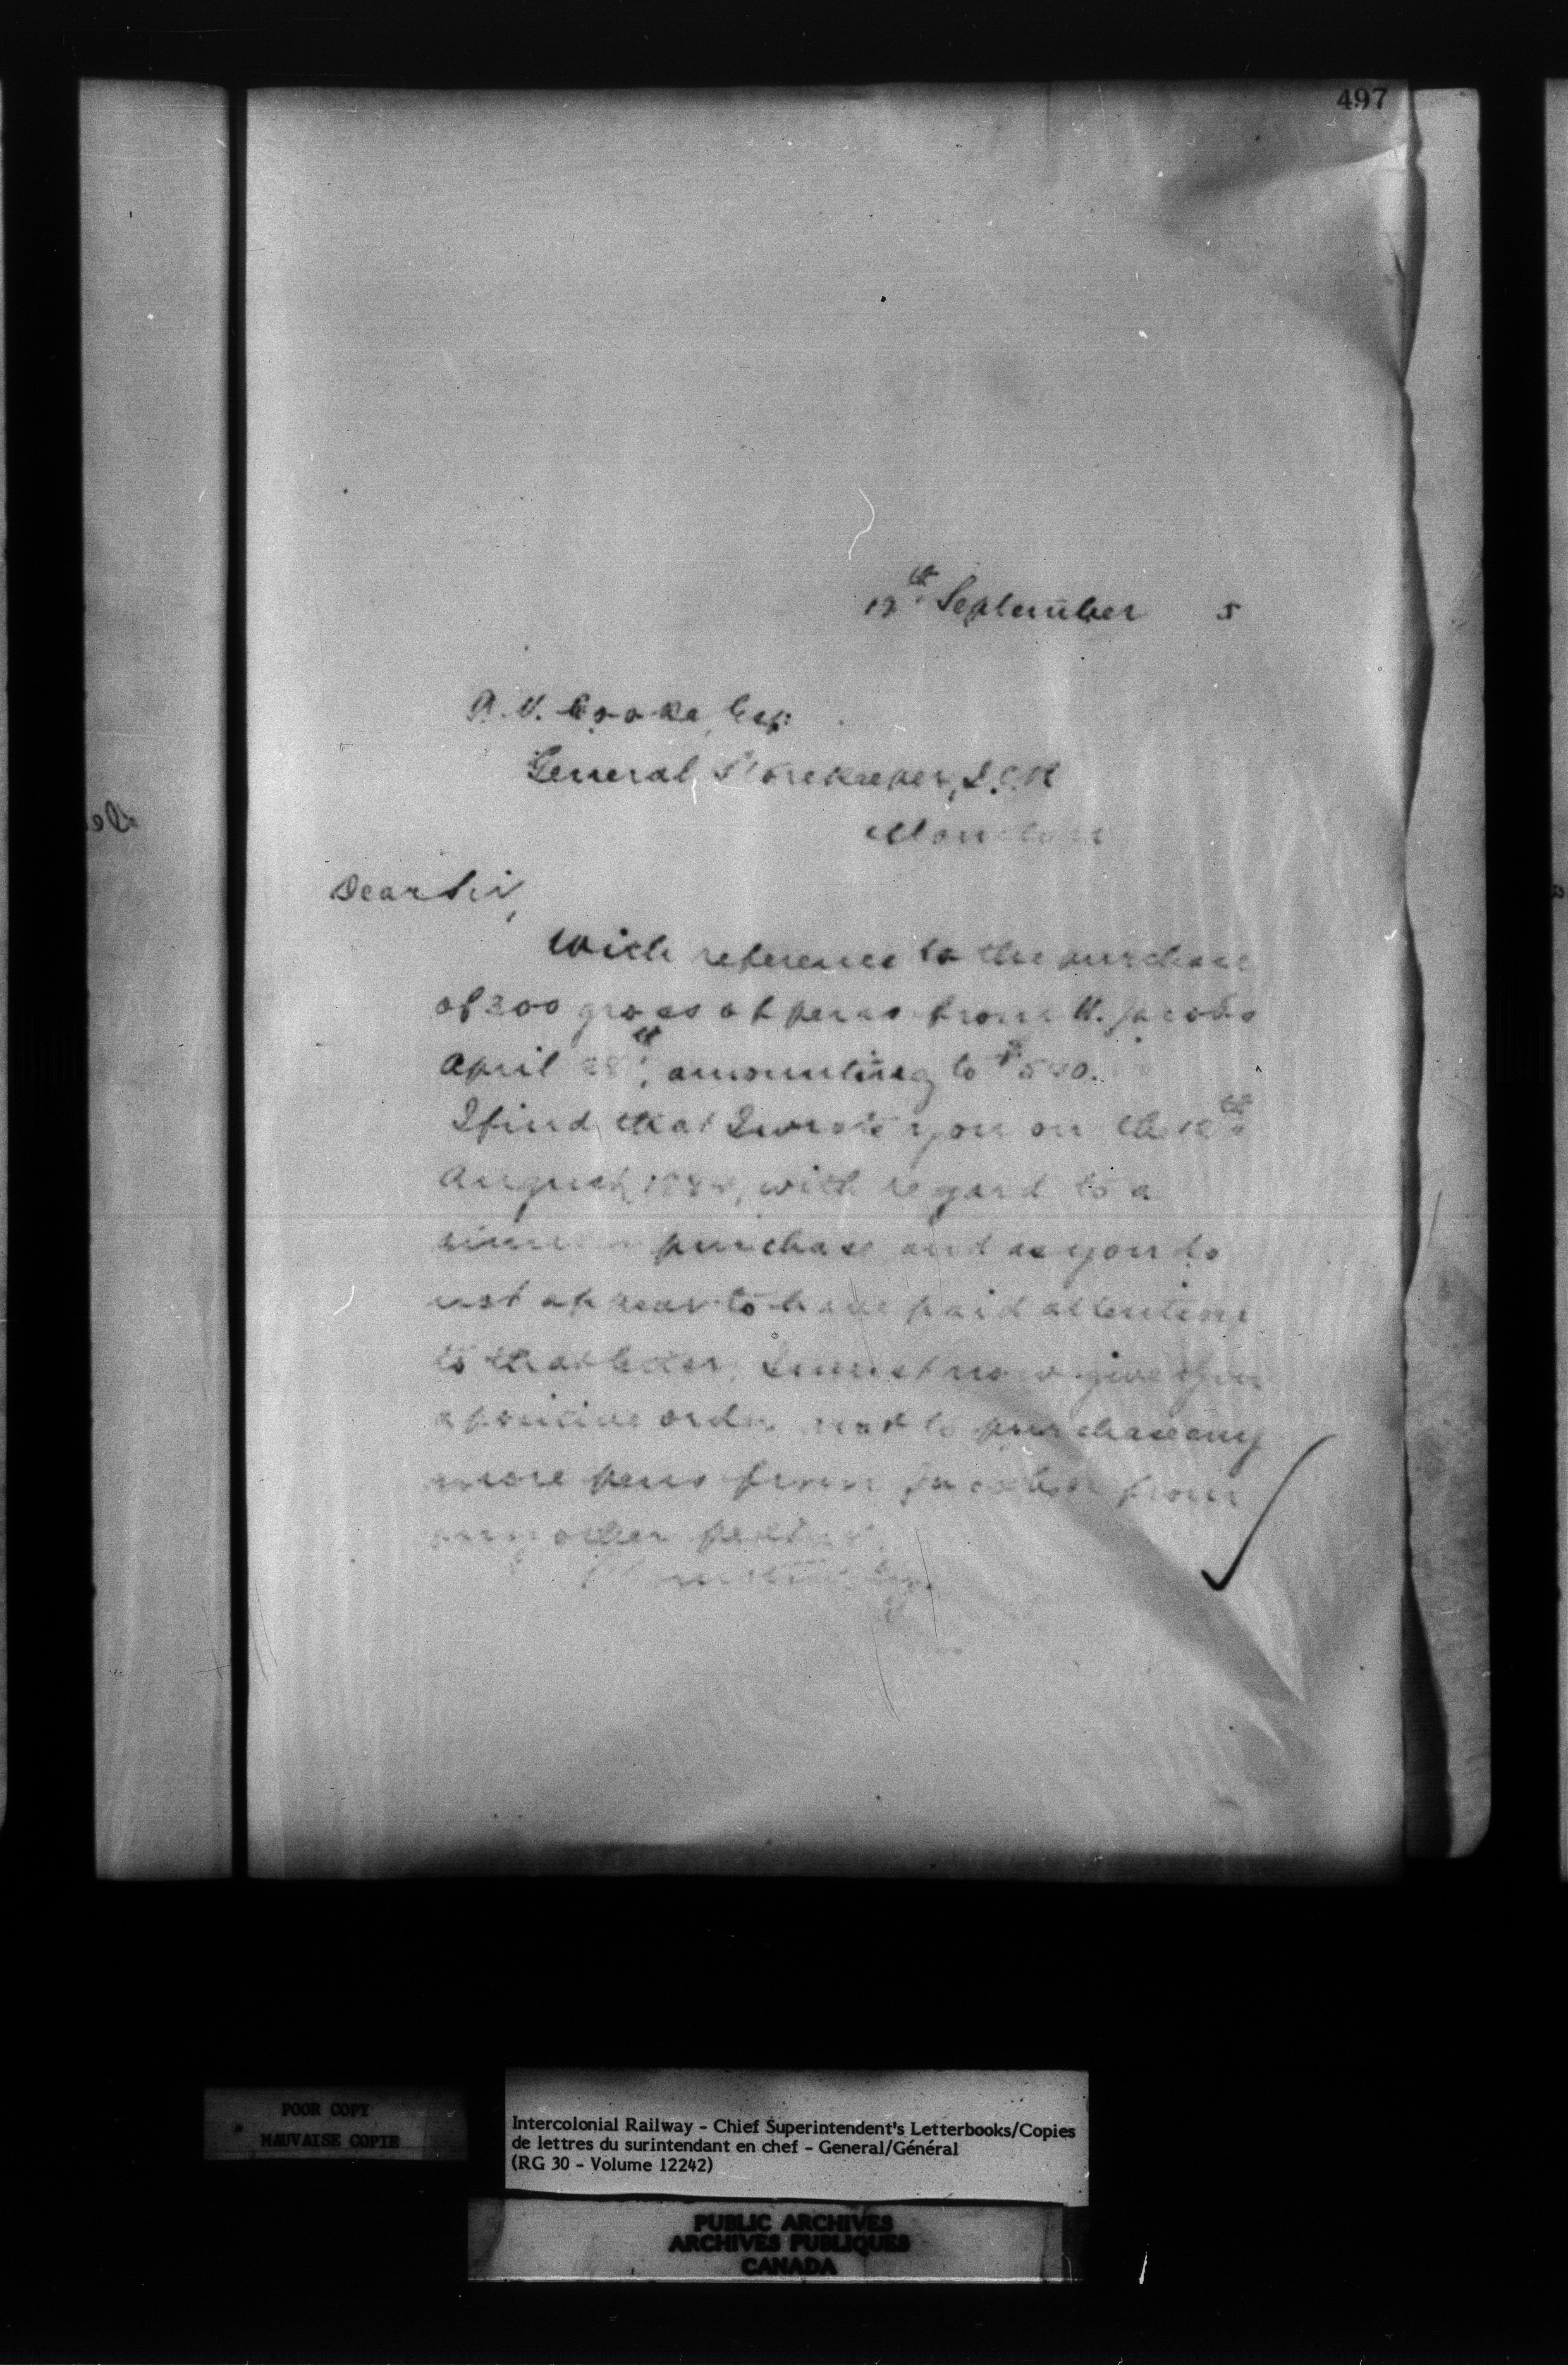 497
September 5
Cooke, Esq
General Storekeeper, I.C.R
Moncton
Dear Sir,
With reference to the purchase
of 300 gross of pens from Jacobs
April amounting to $
I find that I wrote you on the
August, with regard to a
purchase and as you do
not appear to have paid attention
to that letter, I must now give you
a positive order not to purchase any
more pens from Jacobs or from
any other
POOR COPY
MAUVAISE COPIE
Intercolonial Railway - Chief Superintendent's Letterbooks/Copies
de lettres du surintendant en chef - General/Général
(RG 30 - Volume 12242)
PUBLIC ARCHIVES
ARCHIVES PUBLIQUES
CANADA